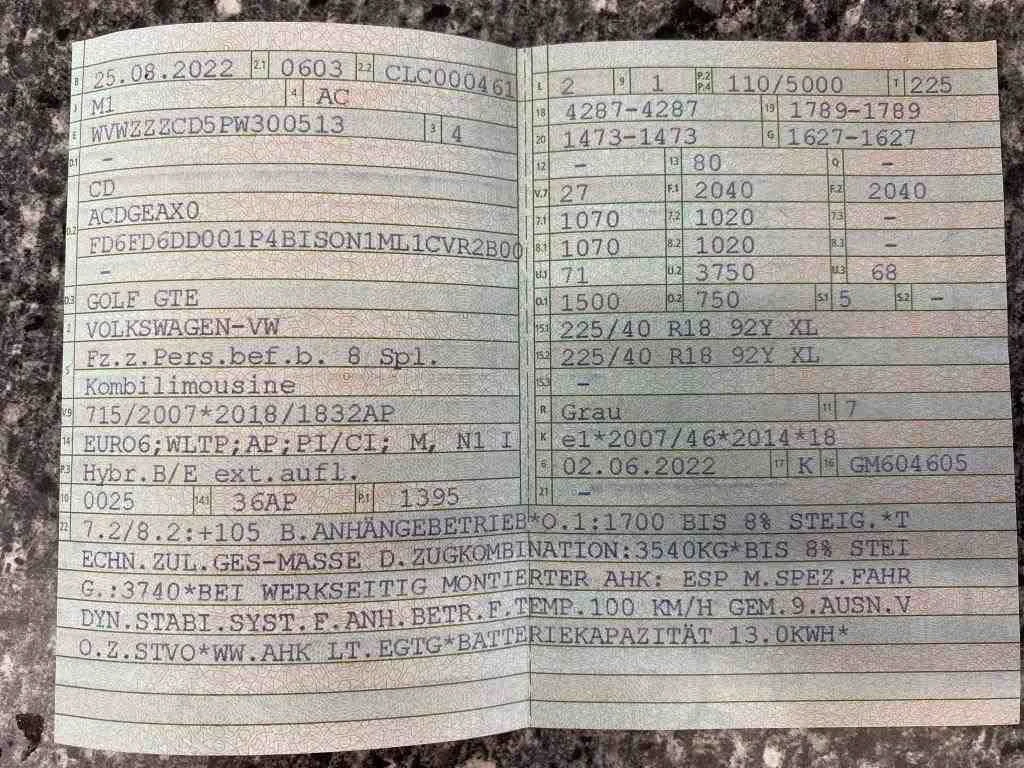 B 25.08.2022 2.1 0603 2.2 CLC000461
J M1 4 AC
E WVWZZZCD5PW300513 3 4
D.1 –
CD
D.2 ACDGEAX0
FD6FD6DD001P4BISON1ML1CVR2B00
–
D.3 GOLF GTE
2 VOLKSWAGEN-VW
5 Fz.z.Pers.bef.b. 8 Spl.
Kombilimousine
V.9 715/2007*2018/1832AP
14 EURO6;WLTP;AP;PI/CI; M, N1 I
P.3 Hybr.B/E ext.aufl.
10 0025 14.1 36AP P.1 1395
L 2 9 1 P.2 P.4 110/5000 T 225
18 4287-4287 19 1789-1789
20 1473-1473 G 1627-1627
12 – 13 80 Q –
V.7 27 F.1 2040 F.2 2040
7.1 1070 7.2 1020 7.3 –
8.1 1070 8.2 1020 8.3 –
U.1 71 U.2 3750 U.3 68
O.1 1500 O.2 750 S.1 5 S.2 –
15.1 225/40 R18 92Y XL
15.2 225/40 R18 92Y XL
15.3 –
R Grau 11 7
K e1*2007/46*2014*18
6 02.06.2022 17 K 16 GM604605
21 –
22 7.2/8.2:+105 B.ANHÄNGEBETRIEB*O.1:1700 BIS 8% STEIG.*T
ECHN.ZUL.GES-MASSE D.ZUGKOMBINATION:3540KG*BIS 8% STEI
G.:3740*BEI WERKSEITIG MONTIERTER AHK: ESP M.SPEZ.FAHR
DYN.STABI.SYST.F.ANH.BETR.F.TEMP.100 KM/H GEM.9.AUSN.V
O.Z.STVO*WW.AHK LT.EGTG*BATTERIEKAPAZITÄT 13.0KWH*